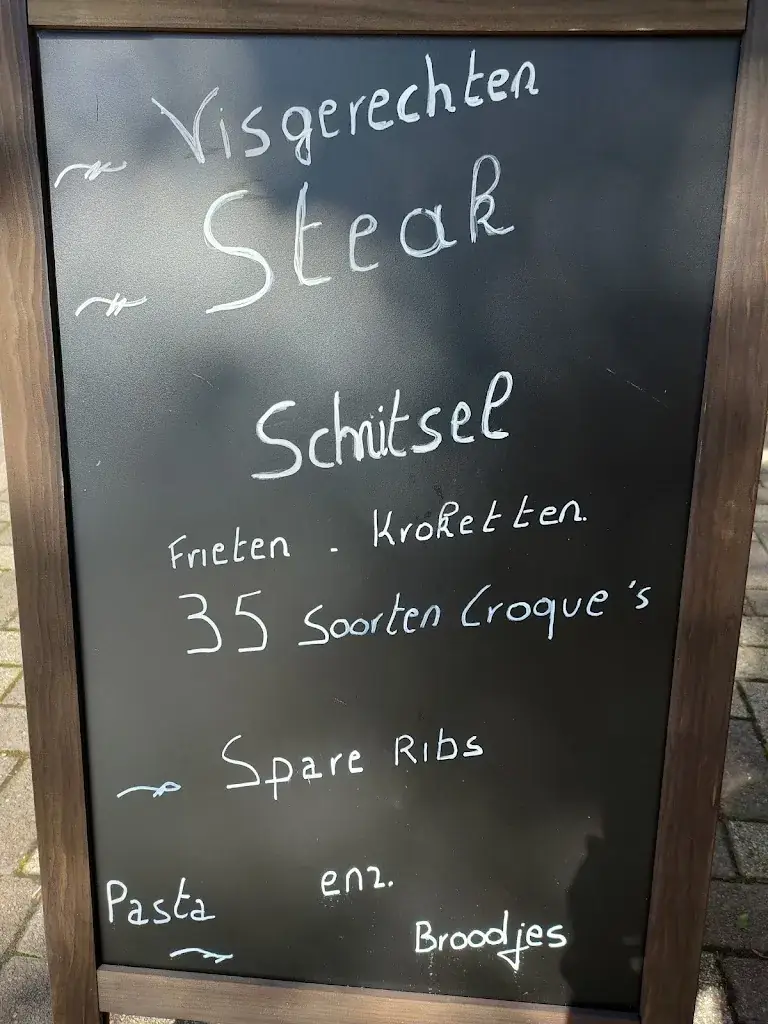 Visgerechten
Steak
Schnitsel
Frieten - Kroketten
35 Soorten Croque's
Spare Ribs
enz.
Pasta
Broodjes